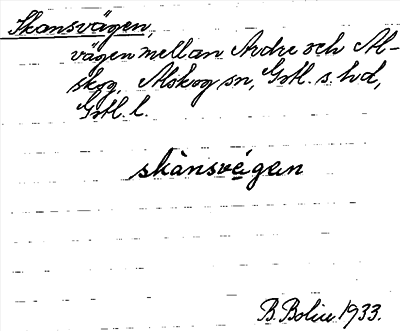 Skansvägen,
vägen mellan Ardre och Al-
skog, Alskog sn, Gotl. s. hd,
Gotl. l.
skànsvégen
B. Bolin 1933.